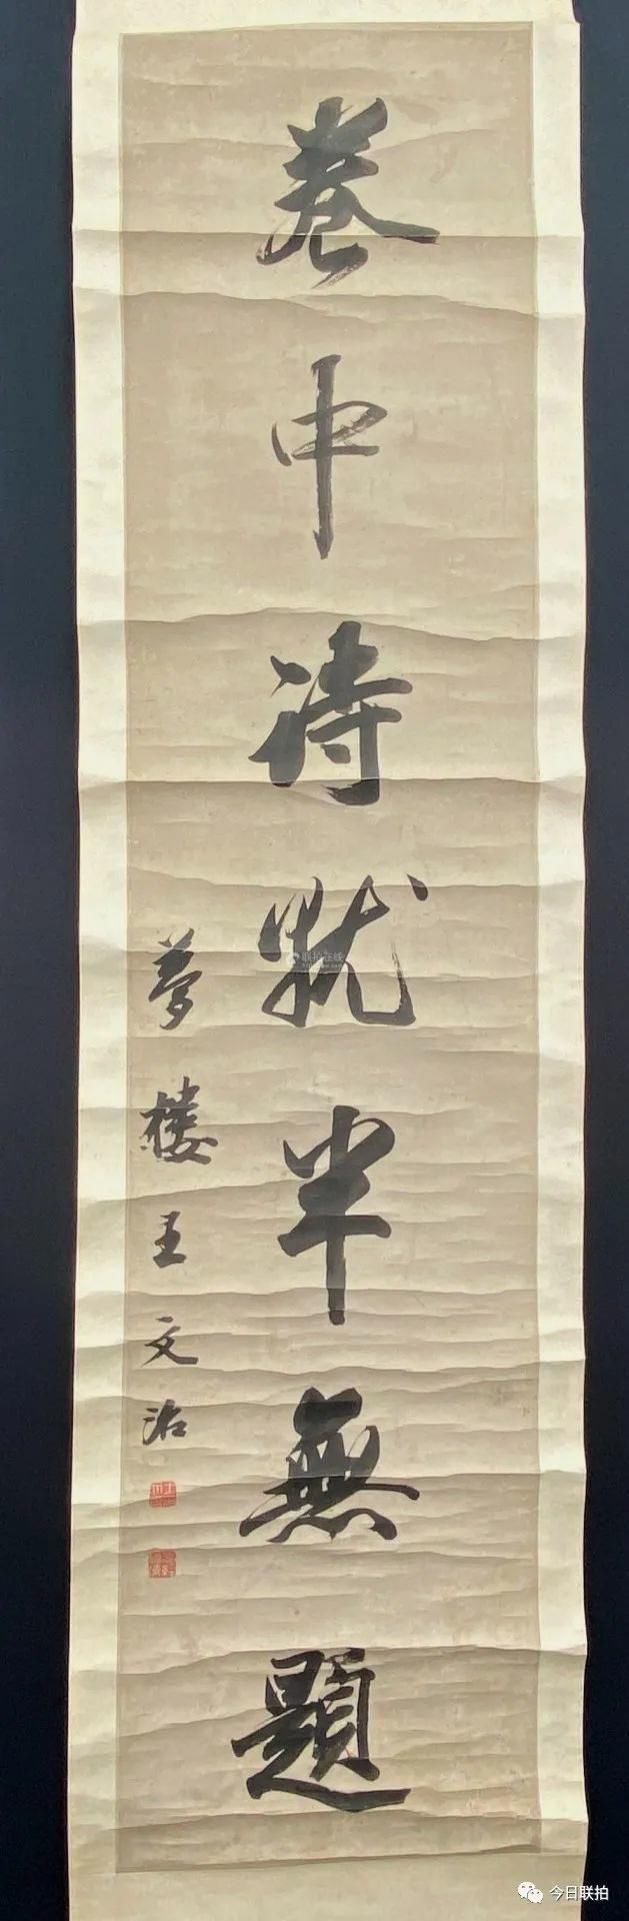 卷中詩就半無題
夢樓王文治
联拍在线
今日联拍